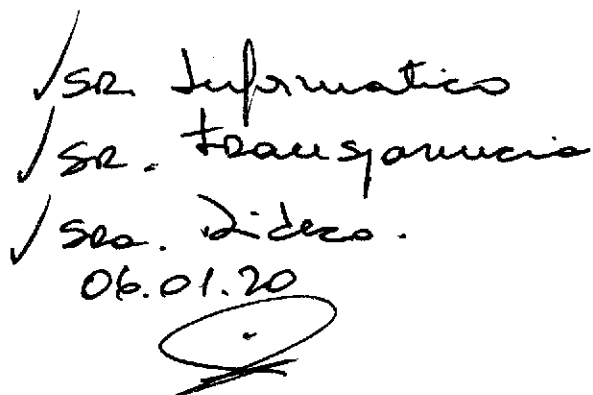 SR Informatico
SR. Transparencia
SRa. Dideco.
06.01.20